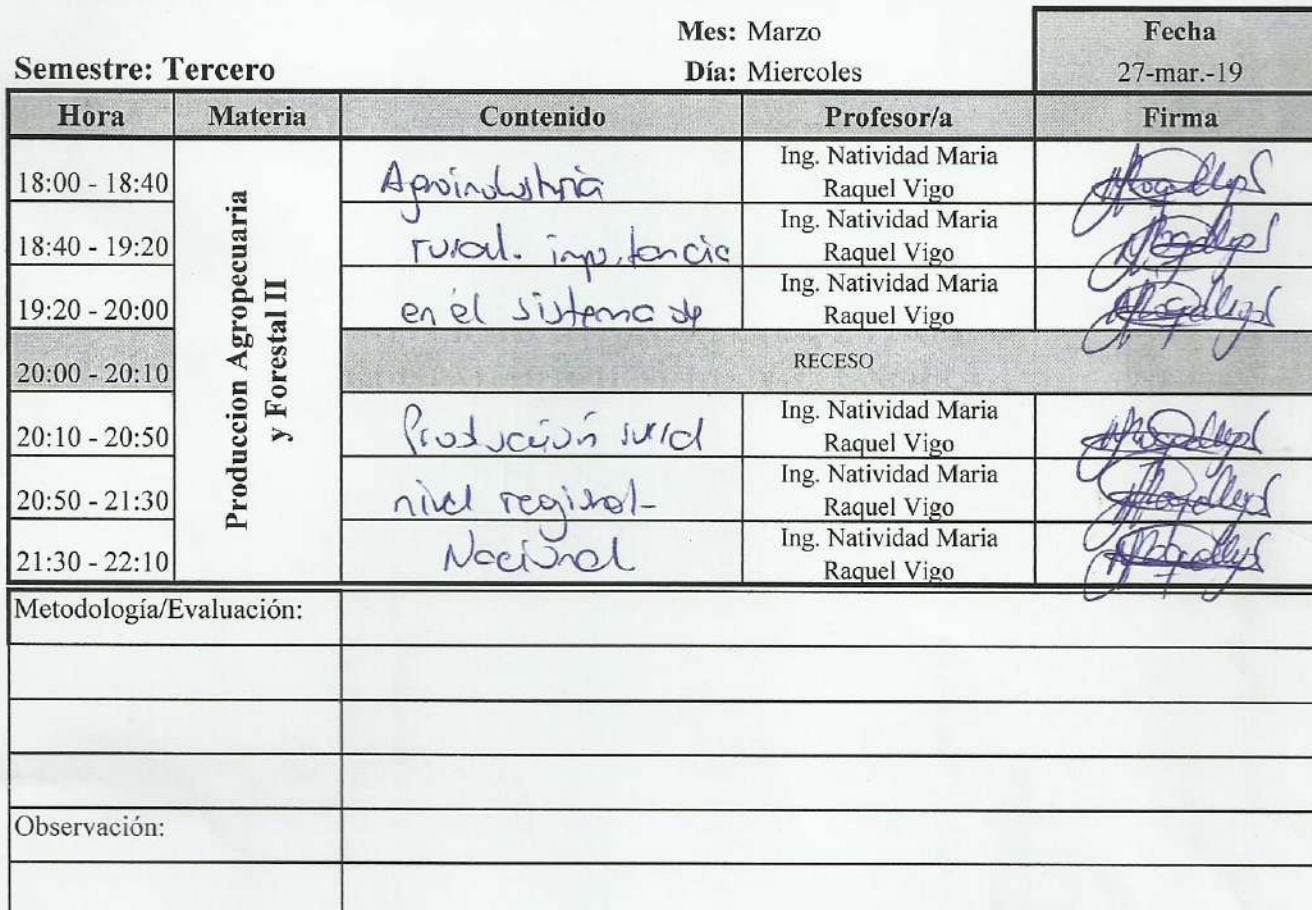 Mes: Marzo
Fecha
Semestre: Tercero
Día: Miercoles
27-mar.-19
Hora Materia Contenido Profesor/a Firma
Produccion Agropecuaria
y Forestal II
18:00 - 18:40 Agroindustria Ing. Natividad Maria
Raquel Vigo
18:40 - 19:20 rural. importancia Ing. Natividad Maria
Raquel Vigo
19:20 - 20:00 en el sistema de Ing. Natividad Maria
Raquel Vigo
20:00 - 20:10 RECESO
20:10 - 20:50 Producción rural Ing. Natividad Maria
Raquel Vigo
20:50 - 21:30 nivel regional- Ing. Natividad Maria
Raquel Vigo
21:30 - 22:10 Nacional Ing. Natividad Maria
Raquel Vigo
Metodología/Evaluación:
Observación: